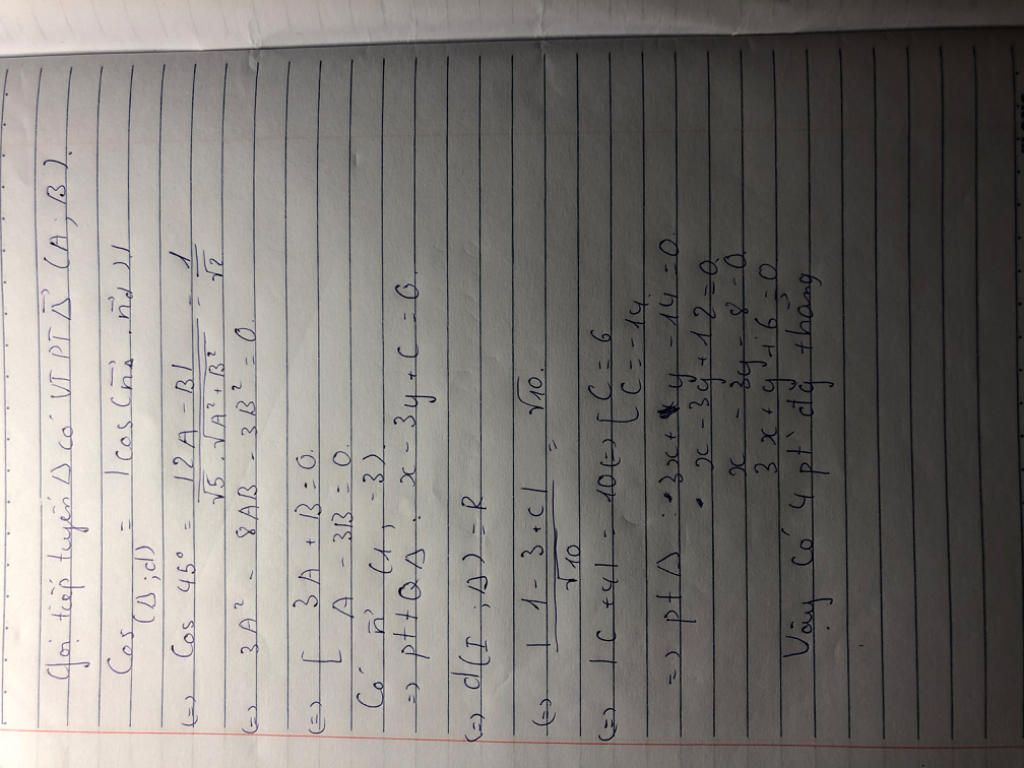 Gọi tiếp tuyến Δ có VTPT Δ⃗ (A; B).
Cos (Δ;d) = |cos(n⃗Δ, n⃗d)|
(=) Cos 45° = |2A - B| / √5 . √A² + B² = 1/√2
(=) 3A² - 8AB - 3B² = 0.
(=) [ 3A + B = 0.
A - 3B = 0.
Có n⃗ (1, -3)
=> pt t Q Δ : x - 3y + C = 0.
(=) d(I ; Δ) = R
(=) |1 - 3 + C| / √10 = √10.
(=) |C + 4| = 10 (=) [ C = 6
C = -14.
=> pt Δ : 3x + y - 14 = 0.
x - 3y + 12 = 0
x - 3y - 8 = 0
3x + y + 6 = 0
Vậy có 4 pt đg thẳng